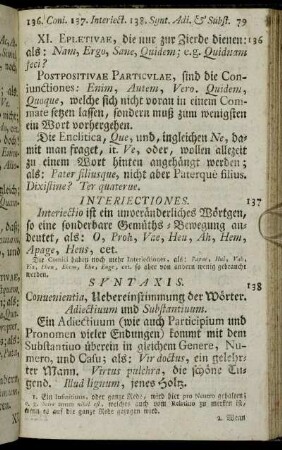 136. Coni. 137. Interiect. 138. Synt. Adi. & Subst. 79
XI. EPLETIVAE, die nur zur Zierde dienen: 136
als: Nam, Ergo, Sane, Quidem; e.g. Quidnam
feci?
POSTPOSITIVAE PARTICVLAE, sind die Con-
junctiones: Enim, Autem, Vero, Quidem,
Quoque, welche sich nicht voran in einem Com-
mate setzen lassen, sondern muß zum wenigsten
ein Wort vorhergehen.
Die Enclitica, Que, und, ingleichen Ne, da-
mit man fraget, it. Ve, oder, wollen allezeit
zu einem Wort hinten angehängt werden;
als: Pater filiusque, nicht aber Paterque filius.
Dixistine? Ter quaterue.
INTERIECTIONES. 137
Interiectio ist ein unveränderliches Wörtgen,
so eine sonderbare Gemüths-Bewegung an-
deutet, als: O, Proh, Vae, Heu, Ah, Hem,
Apage, Heus, cet.
Die Comici haben noch mehr Interiectiones, als:
so aber von andern wenig gebraucht
werden.
SYNTAXIS. 138
Conuenientia, Uebereinstimmung der Wörter.
Adiectiuum und Substantiuum.
Ein Adiectiuum (wie auch Participium und
Pronomen vieler Endungen) kommt mit dem
Substantiuo überein in gleichem Genere, Nu-
mero, und Casu; als: Vir doctus, ein gelehr-
ter Mann. Virtus pulchra, die schöne Tu-
gend. Illud lignum, jenes Holtz.
1. Ein Infinitiuus, oder gantze Rede, wird hier pro Neutro gehalten;
welches auch vom Relatiuo zu mercken ist,
wenn es auf die gantze Rede gezogen wird.
2. Wenn